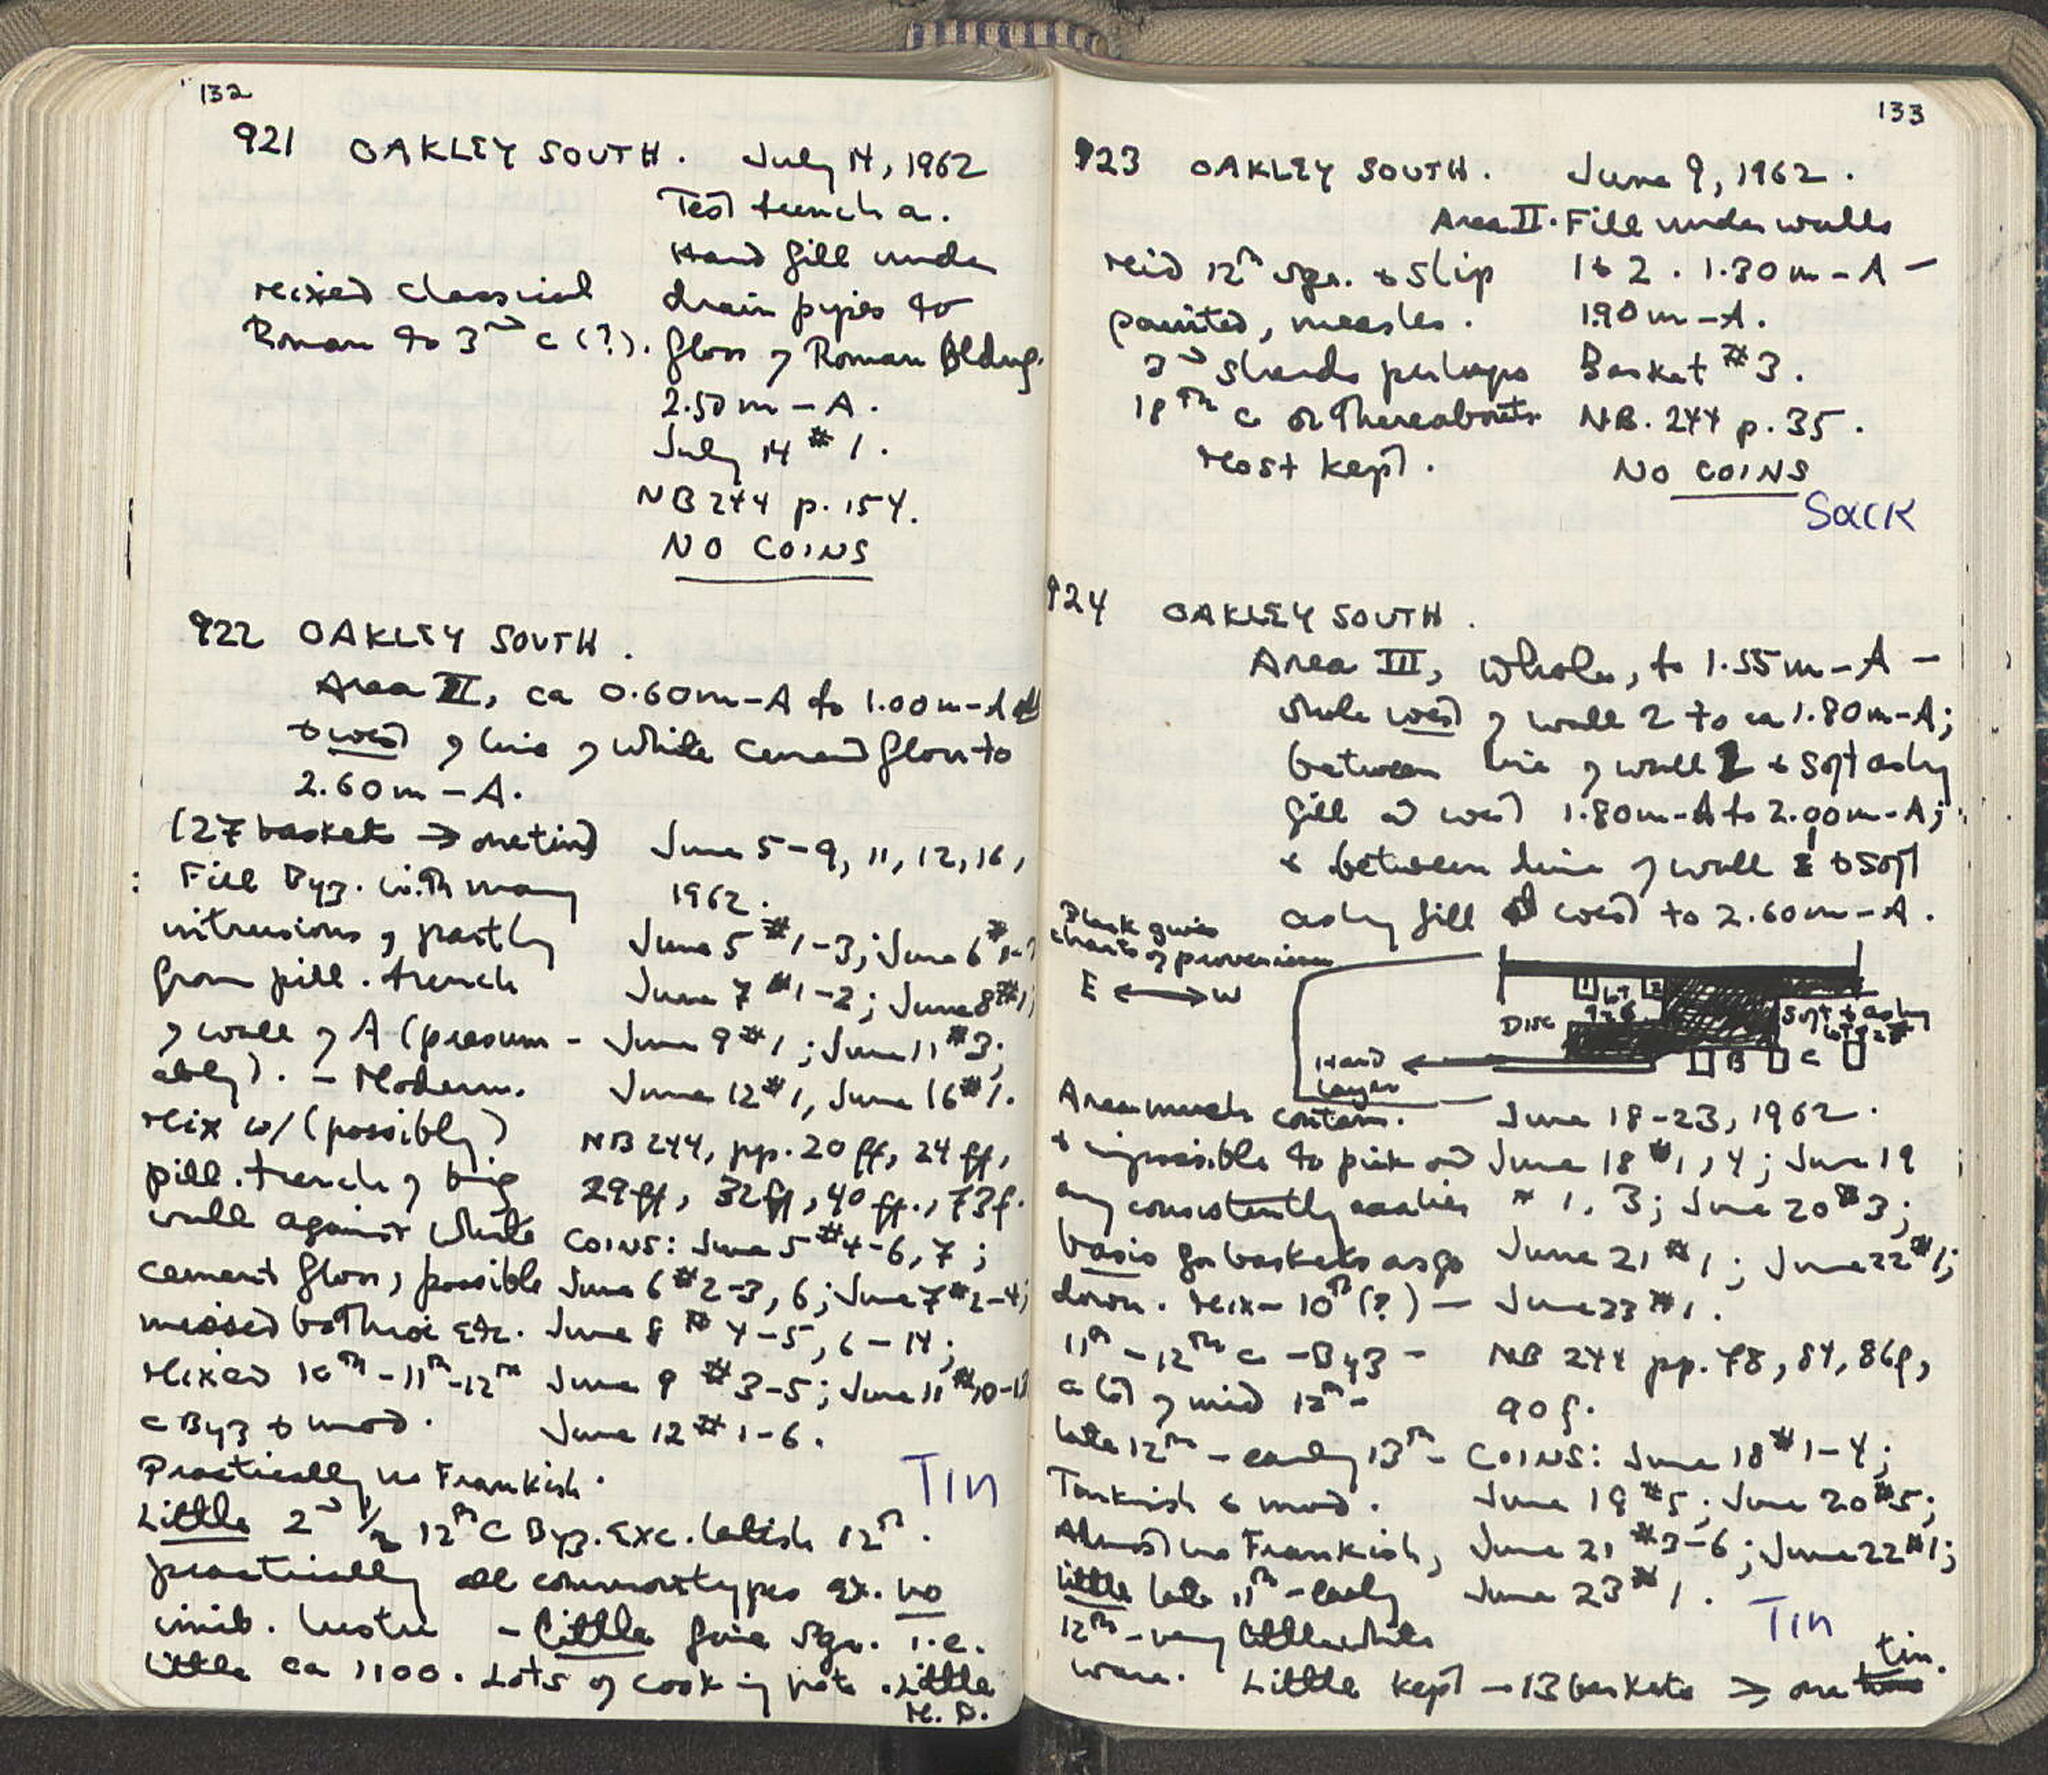 132
921 OAKLEY SOUTH. July 14, 1962
Test trench a.
Hard fill under
Mixed Classical drain pipes to
Roman to 3rd c (?). floor of Roman Bldng.
2.50m-A.
July 14 #1.
NB 244 p. 154.
NO COINS
922 OAKLEY SOUTH.
Area II, ca 0.60m-A to 1.00m-A
& west of line of white cement floor to
2.60m-A.
(27 baskets → one tin) June 5-9, 11, 12, 16,
Fill Byz. with many 1962.
intrusions, partly June 5 #1-3; June 6 #1-
from pill. trench June 7 #1-2; June 8 #1;
of wall of A (presum- June 9 #1; June 11 #3;
ably). - Modern. June 12 #1, June 16 #1.
Mix w/ (possibly) NB 244, pp. 20ff, 24ff,
pill. trench of big 29ff, 32ff, 40ff., 73f.
wall against white COINS: June 5 #4-6, 7;
cement floor, possible June 6 #2-3, 6; June 7 #2-4;
missed bothroi etc. June 8 #4-5, 6-14;
Mixed 10th-11th-12th June 9 #3-5; June 11 #10-
c Byz & mod. June 12 #1-6.
Practically no Frankish.
TIN
Little 2nd 1/2 12th C Byz. Exc. latish 12th.
practically all common types ex. no
imit. lustre - little fine sgr. i.e.
little ca 1100. Lots of cooking pots. Little
M. P.
133
923 OAKLEY SOUTH. June 9, 1962.
Area II. Fill under walls
Mid 12th sgr. & slip 1 & 2. 1.30m-A -
painted, measles. 1.90m-A.
2nd shards perhaps Basket #3.
18th c or thereabouts. NB. 244 p. 35.
Most kept. NO COINS
SACK
924 OAKLEY SOUTH.
Area III, whole, to 1.55m-A -
whole west of wall 2 to ca 1.80m-A;
between line of wall 2 & soft ashy
fill at west 1.80m-A to 2.00m-A;
& between line of wall 1 & soft
ashy fill at west to 2.60m-A.
Black gives
chart of provenience
E ↔ W
1 LOT 2
Disc 926 Soft & ashy
LOT
Hard B C
Layer
Area much contam. June 18-23, 1962.
& impossible to pick out June 18 #1, 4; June 19
any consistently earlier #1, 3; June 20 #3;
basis for baskets as go June 21 #1; June 22 #1;
down. Mix - 10th (?) - June 23 #1.
11th - 12th c - Byz - NB 244 pp. 78, 84, 86f,
a lot of mid 12th - 90f.
late 12th - early 13th - COINS: June 18 #1-4;
Turkish & mod. June 19 #5; June 20 #5;
Almost no Frankish, June 21 #3-6; June 22 #1;
little late 11th - early June 23 #1.
TIN
12th - very little white
ware. Little kept - 13 baskets → one tin.